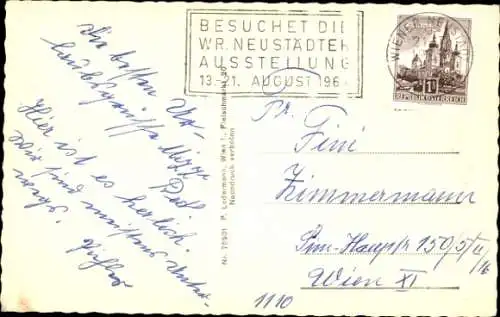 BESUCHET DIE
WR. NEUSTÄDTER
AUSSTELLUNG
13.-21. AUGUST 196
WIENER NEUSTADT
REPUBLIK ÖSTERREICH
Die besten Ur-
laubsgrüsse
Hier ist es herrlich.
Wir sind meistens unter-
wegs.
Nr. 70501 P. Ledermann, Wien I., Fleischmarkt 20
Nachdruck verboten
Fr.
Fini
Zimmermann
Sim. Hauptstr. 150/5/II/16
Wien XI
1110